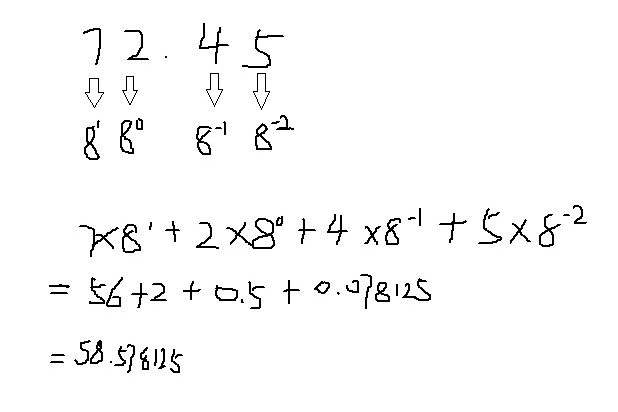 72.45
8¹ 8⁰ 8⁻¹ 8⁻²
7×8¹ + 2×8⁰ + 4×8⁻¹ + 5×8⁻²
= 56+2 + 0.5 + 0.078125
= 58.578125